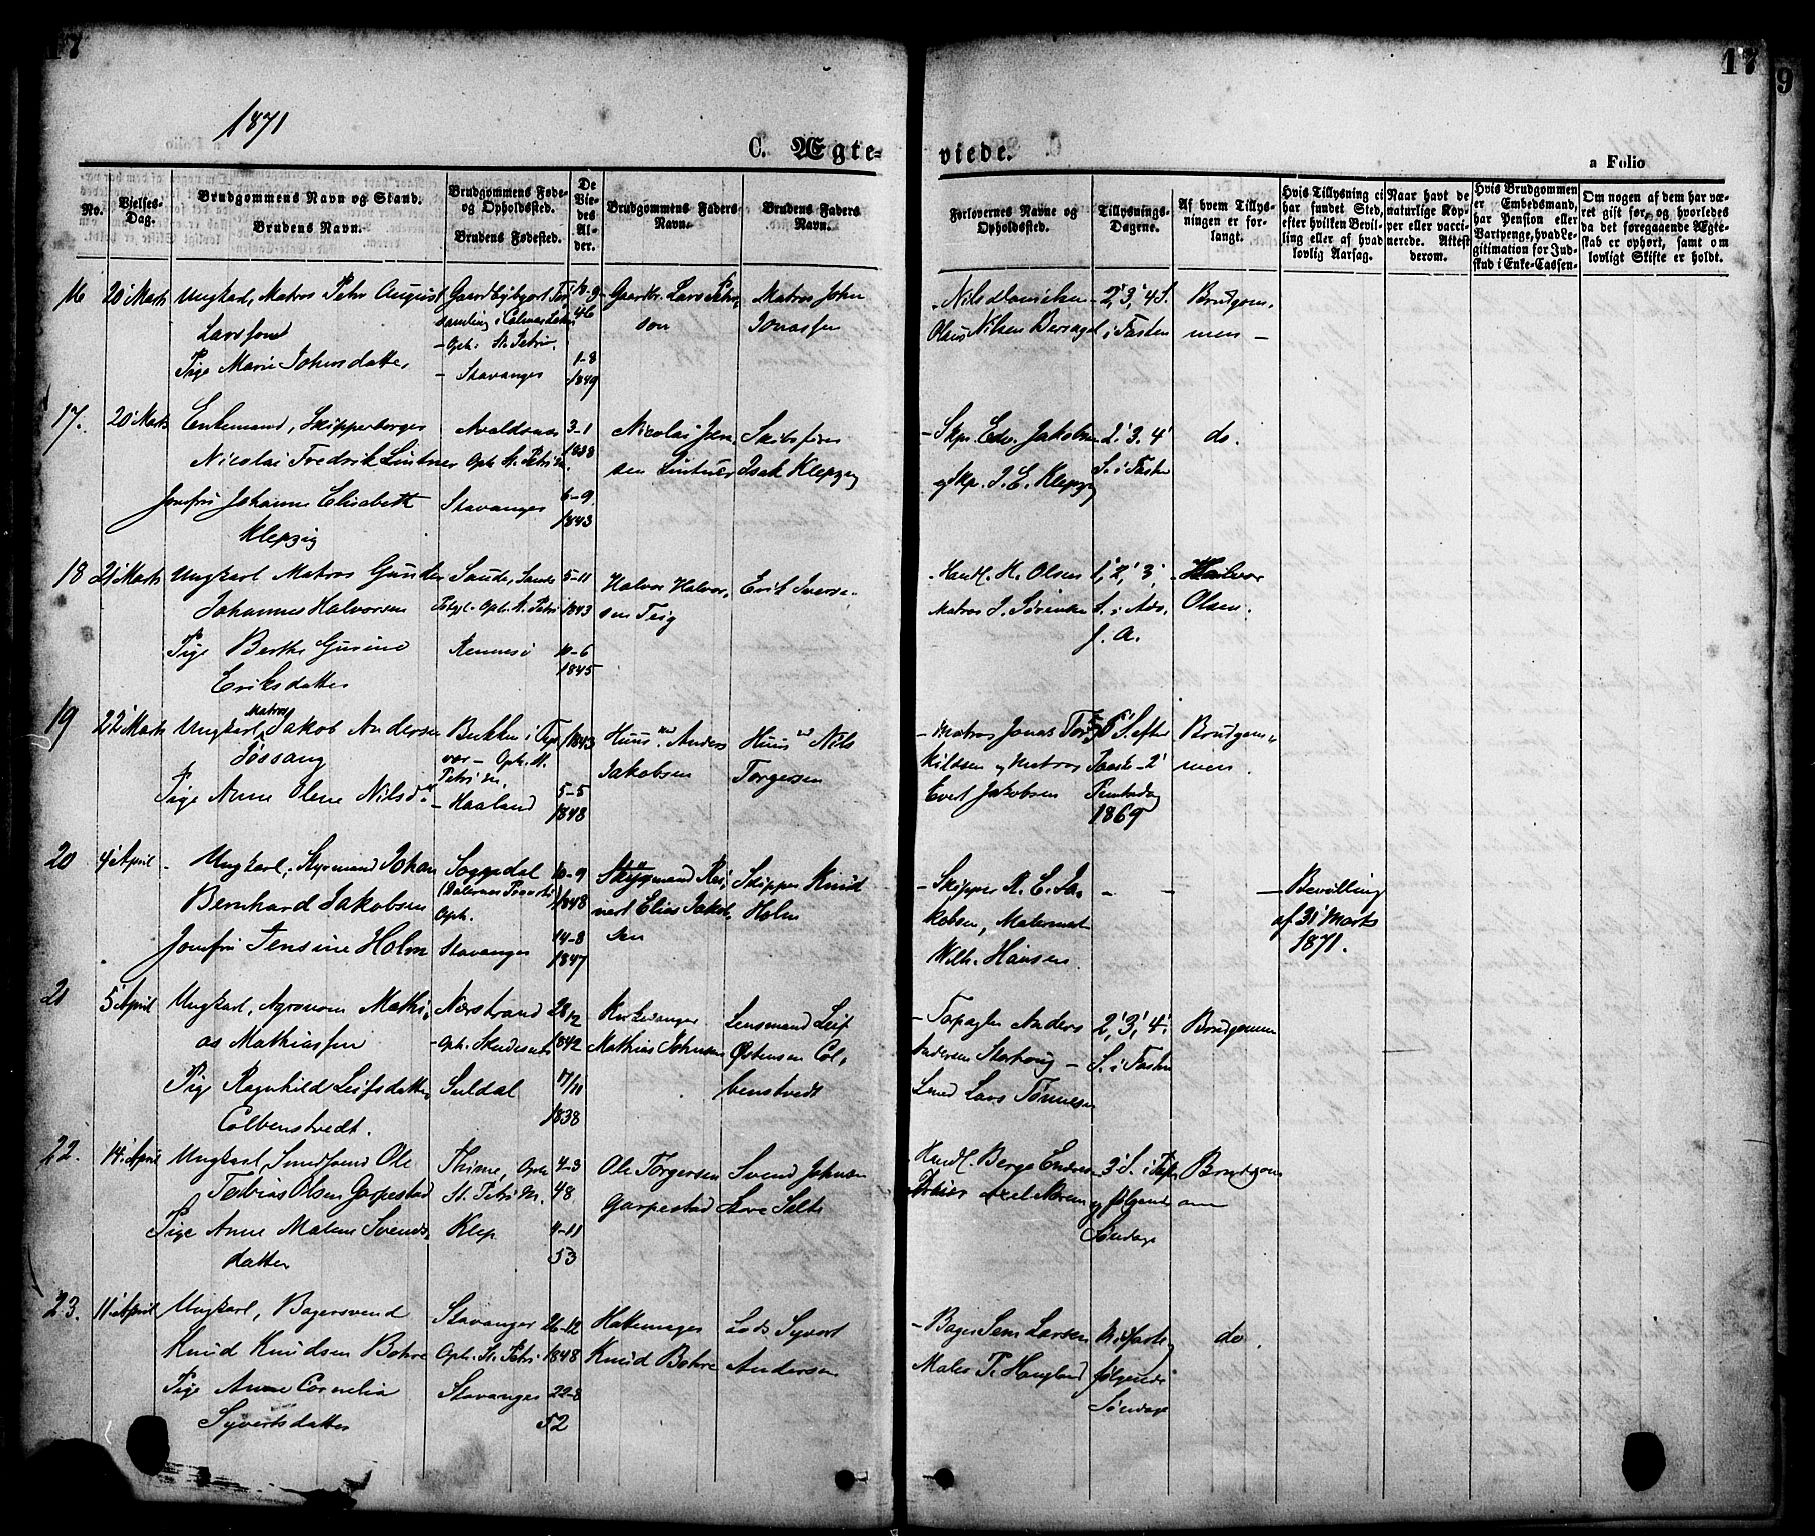 17
17
9
1871
C. Ægte-
viede.
a Folio
No.
Vielses-
Dag.
Brudgommens Navn og Stand.
Brudens Navn.
Brudgommens Føde-
og Opholdssted.
Brudens Fødested.
De
Vie-
des
Al-
der.
Brudgommens Faders
Navn.
Brudens Faders
Navn.
Forlovernes Navne og
Opholdssted.
Tillysnings-
Dagene.
Af hvem Tillys-
ningen er for-
langt.
Hvis Tillysning ei
har fundet Sted,
efter hvilken Bevil-
ling eller af hvad
lovlig Aarsag.
Naar havt de
naturlige Kop-
per eller vacci-
nerede. Attest
derom.
Hvis Brudgommen
er Embedsmand,
har Pension eller
Vartpenge, hvad Le-
gitimation for Ind-
skud i Enke-Cassen.
Om nogen af dem har væ-
ret gift før, og hvorledes
da det foregaaende Ægte-
skab er ophørt, samt om
lovligt Skifte er holdt.
16 20 Marts Ungkarl, Matros Petr August
Larsson
Pige Marie Johnsdatter
Oph: St. Petri.
- Stavanger
46
1-8
1849
Gaardbr. Lars Petr.
son
Matros John
Jonassen
Nils Danielsen
Olaus Nilsen Bersagel
2', 3', 4 S.
i Fasten
Brudgom-
men -
17. 20 Marts Enkemand, Skipperborger
Nicolai Fredrik Lintner
Jomfru Johanne Elisabeth
Klepzig
Avaldsnæs
Oph. St. Petri M.
Stavanger
3-1
1838
6-9
1843
Nicolai Jen
sen Lintner
Isak Klepzig
- Skp. Edv. Jakobsen
og Skp. I. E. Klepzig
2' 3. 4'
S. i Fasten
do.
18 21 Marts Ungkarl Matros Gunder
Johannes Halvorsen
Pige Berthe Gurine
Eriksdatter
Saude, Sande
Oph. St. Petri
Rennesø
5-11
1843
10-6
1845
Halvor Halvor-
sen Teig
Erik Iverse-
Handl. H. Olsen
Matros J. Sørensen
1', 2', 3'
S. i Adv.
f. A.
Halvor
Olsen.
19 22 Marts Ungkarl Matros Jakob Andersen
Jøssang
Pige Anne Olene Nilsdr
Bukken i
Oph. St.
Petri M.
- Haaland
1843
5-5
1848
Huusmd Anders
Jakobsen
Huusmd Nils
Torgersen
- Matros Jonas Tor-
kildsen og Matros
Evert Jakobsen
6' S. efter
Paaske - 2'
Pintsedag
1869
Brudgom-
men.
20 4 April - Ungkarl, Styrmand Johan
Bernhard Jakobsen
Jomfru Tensine Holm
Soggedal
(Dalernes Provsti)
Oph.
Stavanger
10-9
1848
14-8
1847
Rei-
nert Elias Jakob-
sen
Skipper Knud
Holm
- Skipper R. E. Ja-
kobsen, Malermst
Wilh. Hansen.
-
-
- Bevilling
af 31 Marts
1871.
21 5 April Ungkarl, Agronom Mathi-
as Mathiassen
Pige Ragnhild Leifsdatter
Colbenstvedt.
Nærstrand
- Oph. Skudesnæs
Suldal
28-12
1842
17/11
1838
Kirkesanger
Mathias Johnsen
Lensmand Leif
Østensen Col-
benstvedt
- Anders
Andersen Storhoug -
Lars Tønnesen
2', 3', 4'
S. i Fasten
Brudgommen
22. 14 April Ungkarl, Smedsvend Ole
Tobias Olsen Garpestad
Pige Anne Malene Svends-
datter
Thime, Oph.
St. Petri M.
Klep
4-3
48
4-11
53
Ole Torgersen
Garpestad
Svend Johnsen
Store Salte
Handl. Berge Endresen
Axel
3' S. i Fasten
og følgende
Søndage
Brudgom
men
23. 11 April Ungkarl, Bagersvend
Knud Knudsen Bohre
Pige Anne Cornelia
Syvertsdatter
Stavanger
Oph. St. Petri
Stavanger
26-12
1848
22-8
52
Hattemager
Knud Bohre
Lods Syvert
Andersen
- Bager Sem Larsen
Maler P. Haugland
følgende
Søndage
do.